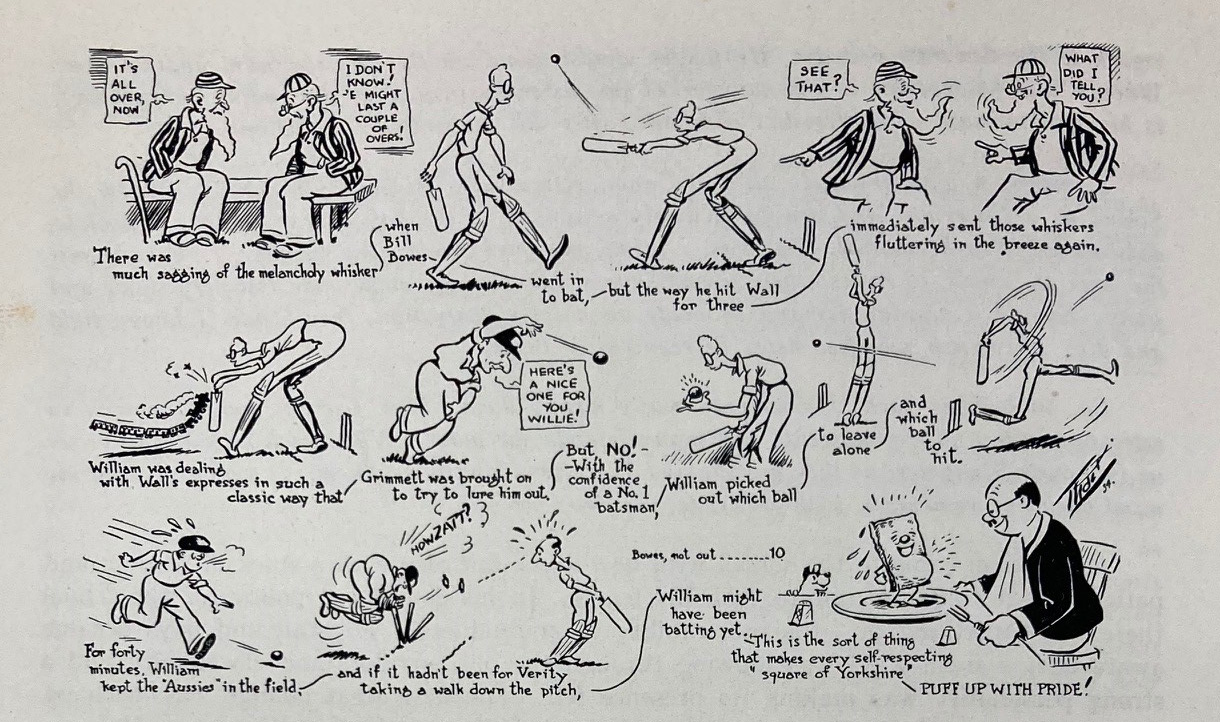 IT'S
ALL
OVER,
NOW
I DON'T
KNOW!
'E MIGHT
LAST A
COUPLE
OF
OVERS!
There was
much sagging of the melancholy whisker
when
Bill
Bowes
went in
to bat,
but the way he hit Wall
for three
SEE
THAT?
WHAT
DID I
TELL
YOU?
immediately sent those whiskers
fluttering in the breeze again.
William was dealing
with Wall's expresses in such a
classic way that
HERE'S
A NICE
ONE FOR
YOU
WILLIE!
Grimmett was brought on
to try to lure him out.
But NO! -
-With the
confidence
of a No. 1
batsman,
William picked
out which ball
to leave
alone
and
which
ball
to
hit.
For forty
minutes, William
kept the "Aussies" in the field,
HOWZATT?
and if it hadn't been for Verity
taking a walk down the pitch,
Bowes, not out ........10
William might
have been
batting yet.
"This is the sort of thing
that makes every self-respecting
"square of Yorkshire"
PUFF UP WITH PRIDE!